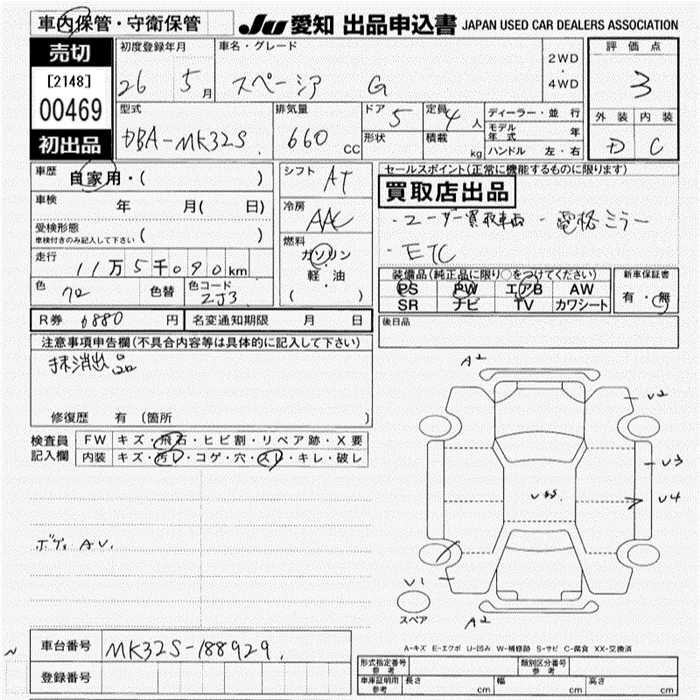 車内保管・守衛保管
JU 愛知 出品申込書 JAPAN USED CAR DEALERS ASSOCIATION
売切
[2148]
00469
初出品
初度登録年月
26 5月
車名・グレード
スペーシア G
2WD
・
4WD
評価点
3
外装 内装
D C
型式
DBA-MK32S
排気量
660 cc
ドア 5
定員 4人
形状
積載 kg
ディーラー・並行
モデル年式 年
ハンドル 左・右
車歴
自家用・( )
車検 年 月( 日)
受検形態
車検付きのみ記入して下さい ( )
走行
11万5千090km
色
色替
色コード
ZJ3
シフト
AT
冷房
AAC
燃料
ガソリン
・
軽・油
( )
セールスポイント(正常に機能するものに限ります)
買取店出品
・ユーザー買取車両 ・電格ミラー
・ETC
装備品(純正品に限り○をつけてください)
PS PW エアB AW
SR ナビ TV カワシート
新車保証書
有・無
R券 6880円
名変通知期限 月 日
後日品
注意事項申告欄(不具合内容等は具体的に記入して下さい)
抹消出品
修復歴 有 (箇所 )
検査員
記入欄
FW キズ・飛石・ヒビ割・リペア跡・X要
内装 キズ・汚レ・コゲ・穴・スレ・キレ・破レ
AU.
A2
U2
U3
U4
U1
A2
スペア
A-キズ E-エクボ U-凹み W-補修跡 S-サビ C-腐食 XX-交換済
車台番号 MK32S-188929
登録番号
型式指定番号
参考
類別区分番号
参考
車庫証明用
参考
長さ cm
幅 cm
高さ cm